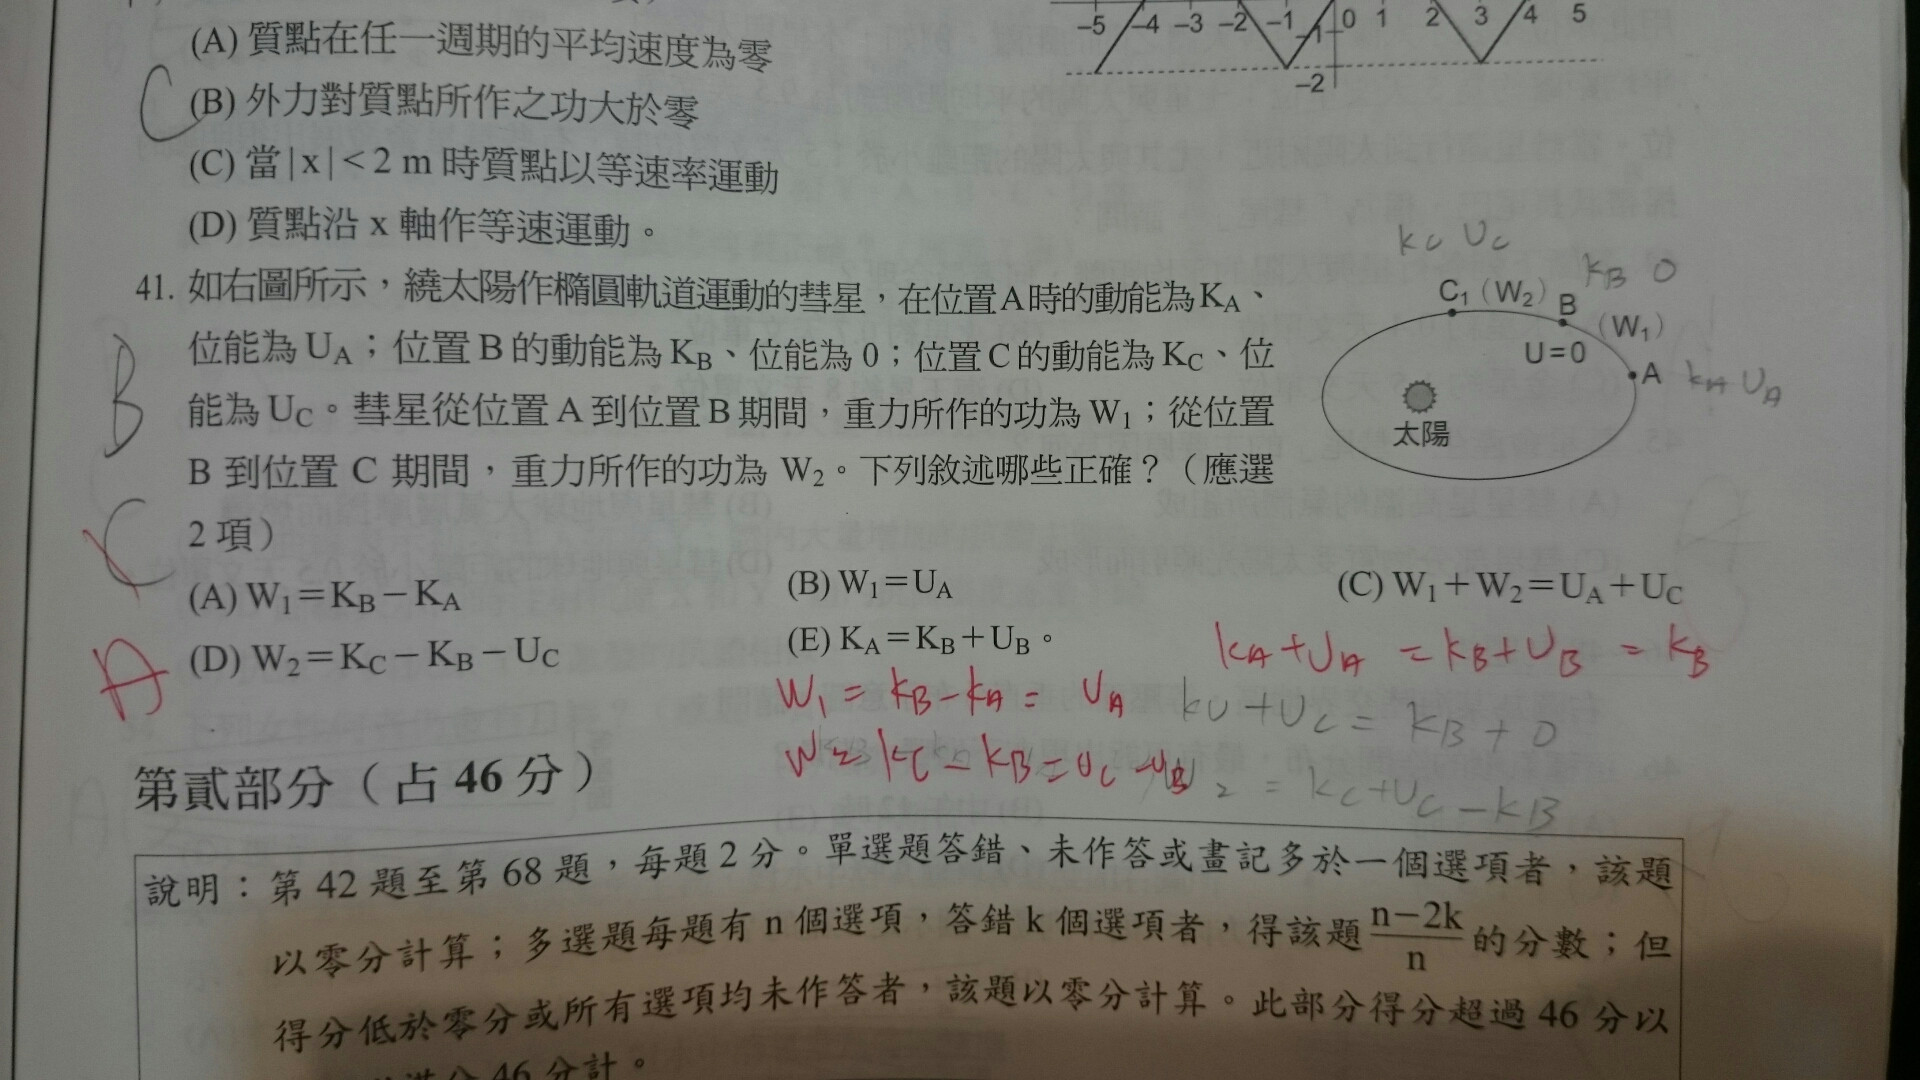 -5 -4 -3 -2 -1 0 1 2 3 4 5
-1
-2
(A) 質點在任一週期的平均速度為零
C
(B) 外力對質點所作之功大於零
(C) 當|x|<2 m 時質點以等速率運動
(D) 質點沿 x 軸作等速運動。
41. 如右圖所示，繞太陽作橢圓軌道運動的彗星，在位置A時的動能為KA、
位能為 UA；位置B的動能為 KB、位能為 0；位置C的動能為 KC、位
能為 UC。彗星從位置 A 到位置B期間，重力所作的功為 W1；從位置
B 到位置 C 期間，重力所作的功為 W2。下列敘述哪些正確？（應選
2 項）
B
C
A
KC UC
KB 0
C1 (W2) B
(W1)
U=0
A KA UA
太陽
(A) W1=KB-KA
(B) W1=UA
(C) W1+W2=UA+UC
(D) W2=KC-KB-UC
(E) KA=KB+UB。
KA+UA = KB+UB = KB
W1 = KB-KA = UA
+UC = KB+0
W2= KC-KB=UC-UB
2 = KC+UC-KB
第貳部分（占 46 分）
說明：第 42 題至第 68 題，每題 2 分。單選題答錯、未作答或畫記多於一個選項者，該題
以零分計算；多選題每題有 n 個選項，答錯 k 個選項者，得該題 n-2k/n 的分數；但
得分低於零分或所有選項均未作答者，該題以零分計算。此部分得分超過 46 分以
46 分計。